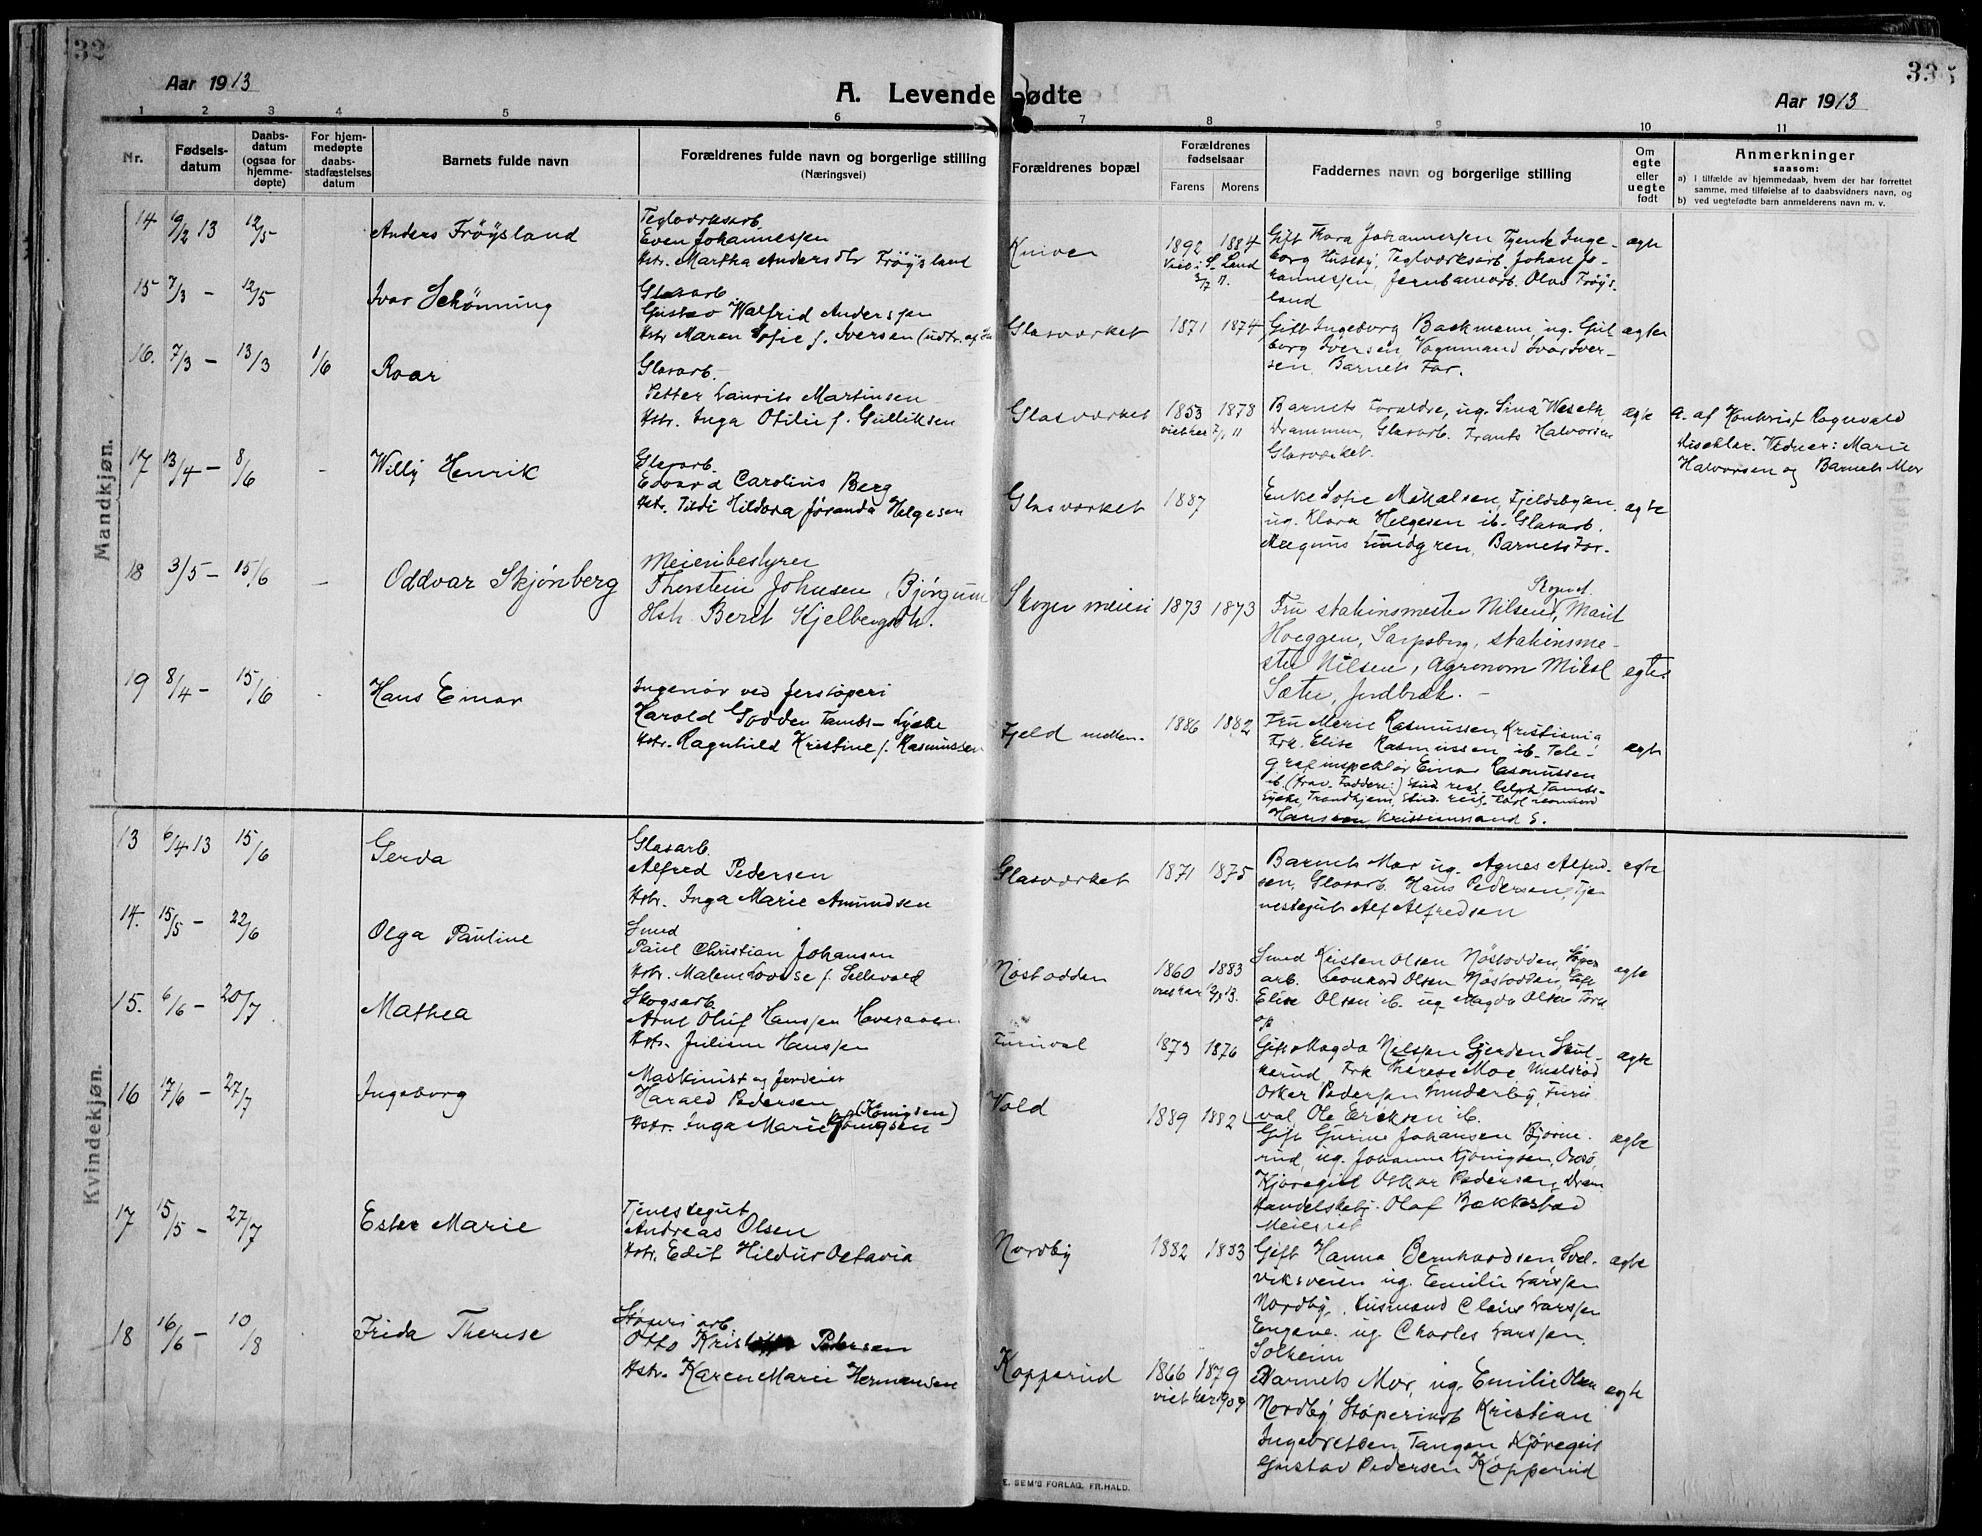 32
33
Aar 1913
A. Levende fødte
Aar 1913
1 2 3 4 5 6 7 8 9 10 11
Nr.
Fødsels-
datum
Daabs-
datum
(ogsaa for
hjemme-
døpte)
For hjem-
medøpte
daabs-
stadfæstelses
datum
Barnets fulde navn
Forældrenes fulde navn og borgerlige stilling
(Næringsvei)
Forældrenes bopæl
Forældrenes
fødselsaar
Farens Morens
Faddernes navn og borgerlige stilling
Om
egte
eller
uegte
født
Anmerkninger
saasom:
a) I tilfælde av hjemmedaab, hvem der har forrettet
samme, med tilføielse af to daabsvidners navn, og
b) ved uegtefødte barn anmelderens navn m. v.
Mandkjøn.
14 19/2 13 12/5 Anders Frøysland
Teglværksarb.
Even Johannessen
Hstr. Martha Andersdtr Frøysland
Kniven
1892 1884
Gift Thora Johannessen, Tjende Inge-
borg Huseby, Teglværksarb. Johan Jo-
hannessen, Jernbanearb. Olav Frøys-
land
ægte
15 7/3 - 12/5 Ivar Schønning
Glasarb.
Gustav Walfrid Anderssen
Hstr. Maren Sofie f. Iversen
Glasværket
1871 1874
Gift Ingeborg Backmann, ug. Gul-
borg Iversen, Vognmand Ivar Iver-
sen, Barnets Far.
ægte
16. 7/3 - 13/3 1/6 Roar
Glasarb.
Petter Laurits Martinsen
Hstr. Inga Otilie f. Gulliksen
Glasværket
1853 1878
viet her 7/1 11
Barnets Forældre, ug. Sina Weseth,
Drammen, Glasarb. Frants Halvorsen
Glasværket.
ægte
a. af Kontrist Ragnvald
Vidner: Marie
Halvorsen og Barnets Mor
17 13/4 - 8/6 - Willy Henrik
Glasarb.
Edvard Carolius Berg
Hstr. Tildi Hildora Jøranda Helgesen
Glasværket
1887
Enke Sofie Mikalsen, Fjeldsbyen,
ug. Klara Helgesen ib. Glasarb.
Magnus Lundgren, Barnets Far.
ægte
18 3/5 - 15/6 - Oddvar Skjønberg
Meieribestyrer
Thorstein Johnsen Bjørgum
Hstr. Berit Kjelbergsdtr.
Skoger meieri
1873 1873
Fru stationsmester Nilsen, Marit
Hoeggen, Sarpsborg, stationsme-
ster Nilsen, Agronom Mikal
Sæter, Jordbræk. -
egte
19 8/4 - 15/6 Hans Einar
Ingeniør ved jernstøperi
Harald Godden Tambs-Lyche
Hstr. Ragnhild Kristine f. Rasmussen
Fjeld mellem.
1886 1882
Fru Marie Rasmussen, Kristiania
Frk. Elise Rasmussen ib. Tele-
grafinspektør Einar Rasmussen
ib. (frav. Faddere:) Stud real. Ralph Tambs-
Lyche, Trondhjem, Stud. real.
Hanssen, Kristianssand S.
ægte
Kvindekjøn.
13 6/4 13 15/6 Gerda
Glasarb.
Alfred Pedersen
Hstr. Inga Marie Amundsen
Glasværket
1871 1875
Barnets Mor ug. Agnes Alfred-
sen, Glasarb. Hans Pedersen, Tje-
nestegut Alf Alfredsen
egte
14. 15/5 - 22/6 Olga Pauline
Smed
Paul Christian Johansen
Hstr. Malene Lovise f. Sellevold
Nøstodden
1860 1883
Smed Kristen Olsen Nøstodden, Støper-
arb. Leonard Olsen Nøstodden, Gift
Elise Olsen ib. ug. Magda Olsen
ægte
15. 6/6 - 20/7 Mathea
Skogsarb.
Arne Oluf Hanssen
Hstr. Juliane Hanssen
Furuval
1873 1876
Gift Magda Nilssen Gjerden Skul-
kerud, Frk Therese Moe
Oskar Pedersen Sunderby, Furu-
val, Ole Eriksen ib.
ægte
16 17/6 - 27/7 Ingeborg
Maskinist og jordeier
Harald Pedersen
Hstr. Inga Marie Kjønigsen (Kønigsen)
Vold
1889 1882
Gift Gurine Johansen Bjørne-
rud, ug. Johanne Kjønigsen,
Kjøregut Oskar Pedersen, Dram.
Handelsbetj. Olaf Bækkestad
ægte
17 15/5 - 27/7 Ester Marie
Tjenestegut
Andreas Olsen
Hstr. Edit Hildur Octavia
Nordby
1882 1883
Gift Hanna Bernhardsen, Svel-
viksveien ug. Emilie Larssen
Nordby, Husmand Claus Larssen
Engene. ug. Charles Larssen,
Solheim
ægte
18 16/6 - 10/8 Frida Therese
Støperiarb.
Otto Pedersen
Hstr. Karen Marie Hermansen
Kopperud
1866 1879
viet her 1909
Barnets Mor, ug. Emilie Olsen
Nordby, Støperiarb Kristian
Ingebretsen, Tangen, Kjøregut
Gustav Pedersen Kopperud
ægte
E. SEM'S FORLAG, FR.HALD.